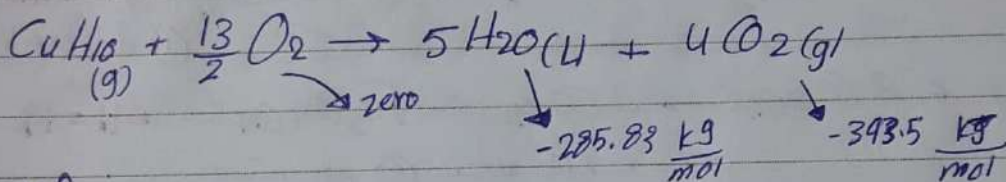 C4H10 + 13/2 O2 → 5 H2O(l) + 4 CO2(g)
(g)
zero
-285.83 kg/mol -393.5 kg/mol